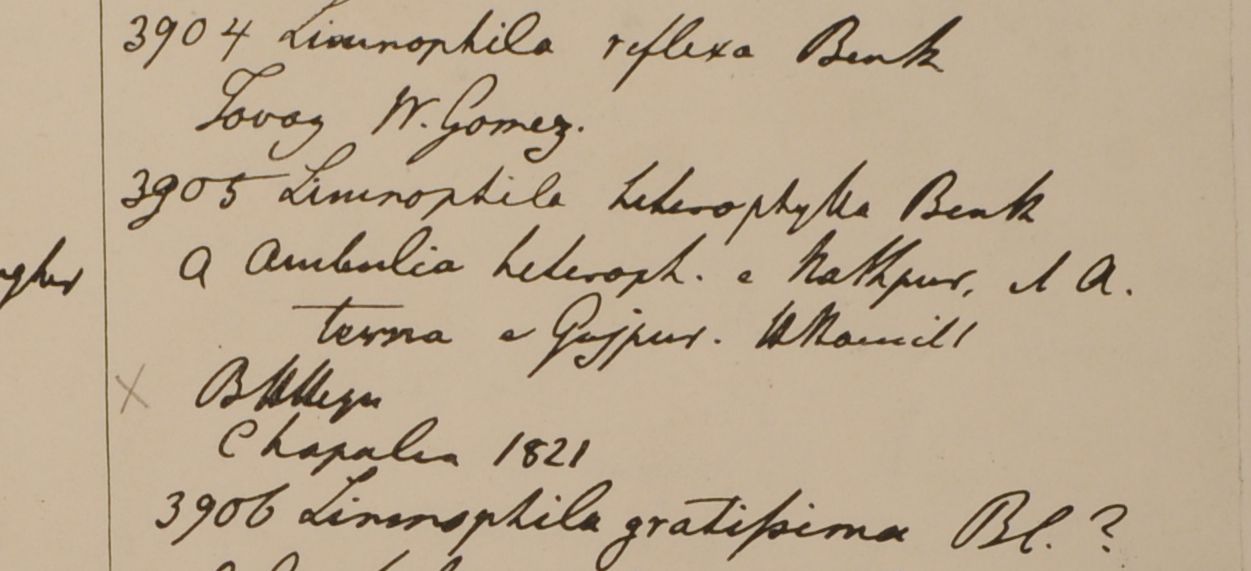 3904 Limnophila reflexa Benth
Tavoy W. Gomez.
3905 Limnophila heterophylla Benth
a Ambulia heteroph. e Nathpur, et A.
terna e Gojpur. HHamilt
B HHeyn
C hapalea 1821
3906 Limnophila gratissima Bl. ?